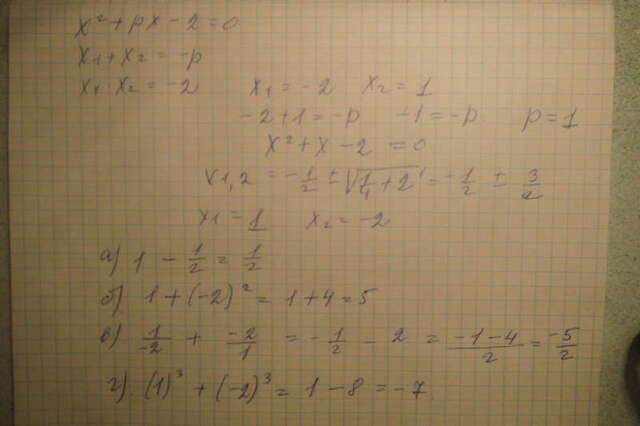 x² + px - 2 = 0
x₁ + x₂ = -p
x₁ x₂ = -2 x₁ = -2 x₂ = 1
-2 + 1 = -p -1 = -p p = 1
x² + x - 2 = 0
x1,2 = -1/2 ± √(1/4 + 2) = -1/2 ± 3/2
x₁ = 1 x₂ = -2
а) 1 - 1/2 = 1/2
б) 1 + (-2)² = 1 + 4 = 5
в) 1/-2 + -2/1 = -1/2 - 2 = -1-4/2 = -5/2
г) (1)³ + (-2)³ = 1 - 8 = -7